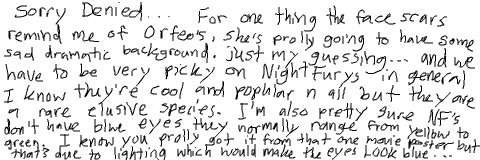 Sorry Denied... For one thing the face scars
remind me of Orfeo's, she's prolly going to have some
sad dramatic background. just my guessing... and we
have to be very picky on Nightfurys in general
I know they're cool and popular n all but they are
a rare elusive species. I'm also pretty sure NF's
don't have blue eyes they normally range from yellow to
green. I know you prolly got it from that one movie poster but
that's due to lighting which would make the eyes look blue...